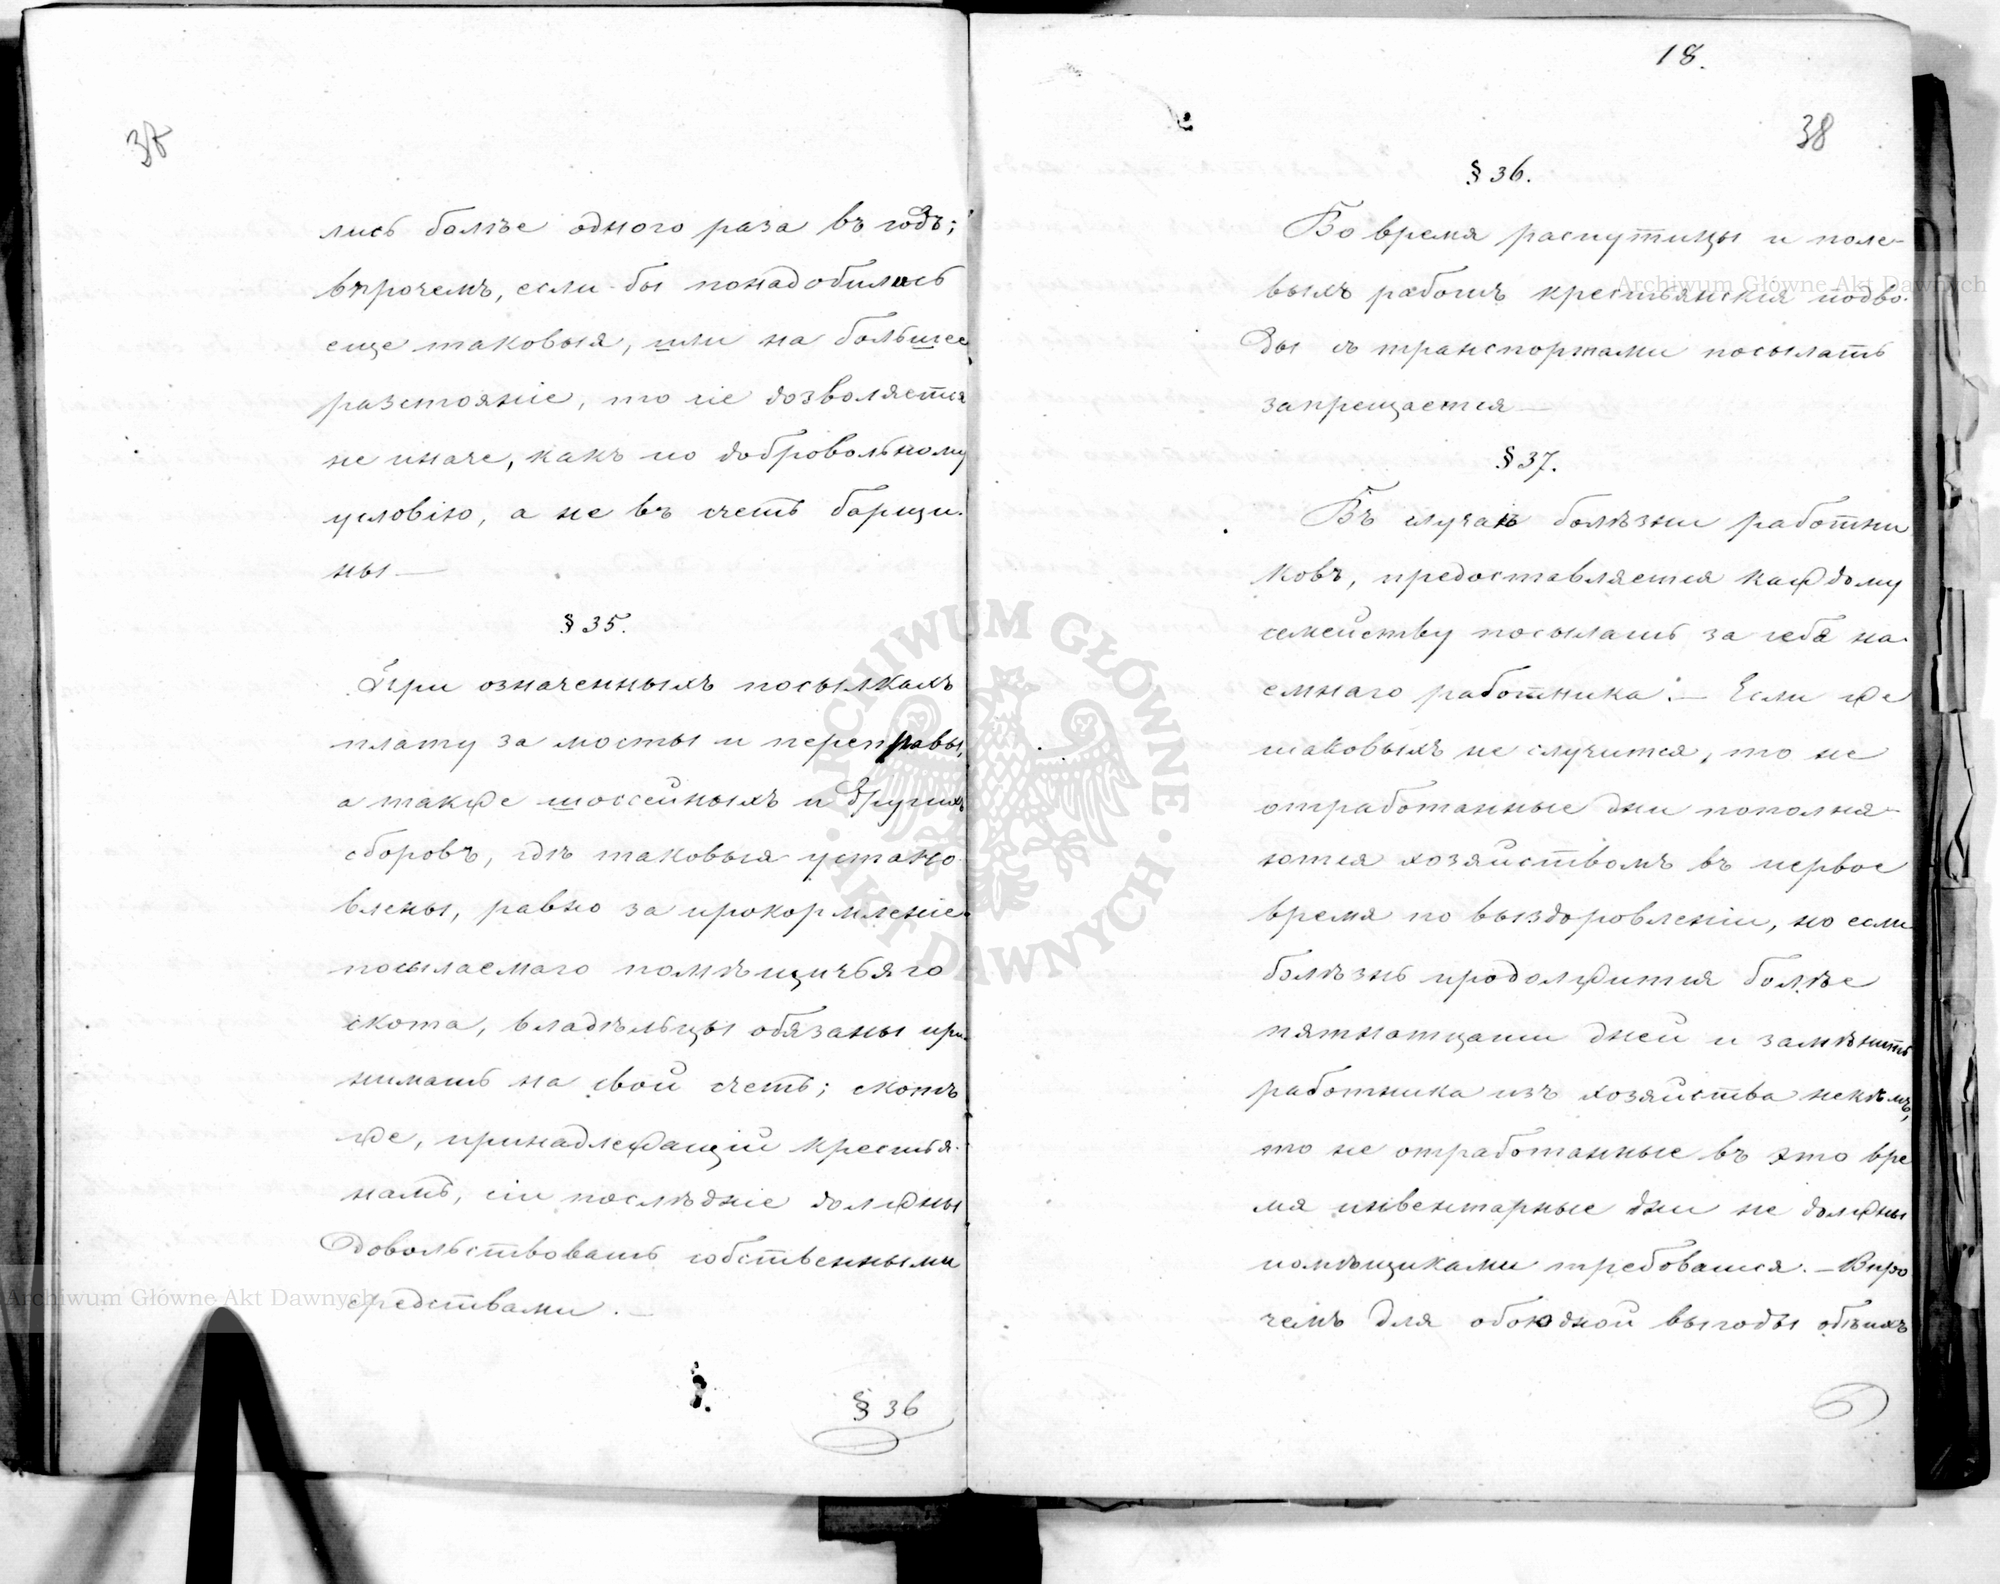 37
лись болѣе одного раза въ годъ;
впрочемъ, если-бы понадобились
еще таковыя, или на большее
разстояніе, то сіе дозволяется
не иначе, какъ по добровольному
условію, а не въ счетъ барщи-
ны —
§ 35.
При означенныхъ посылкахъ
плату за мосты и переправы,
а также шоссейныхъ и другихъ
сборовъ, гдѣ таковыя устано
влены, равно за прокормленіе
посылаемаго помѣщичьяго
скота, владѣльцы обязаны при-
нимать на свой счетъ; скотъ
же, принадлежащій крестья-
намъ, сіи послѣдніе должны
довольствовать собственными
средствами. —
§ 36
18.
38
§ 36.
Во время распутицы и поле-
выхъ работъ крестьянскія подво-
ды съ транспортами посылать
запрещается —
§ 37.
Въ случаѣ болѣзни работни
ковъ, предоставляется каждому
семейству посылать за себя на-
емнаго работника. — Если же
таковыхъ не случится, то не
отработанные дни пополня-
ются хозяйствомъ въ первое
время по выздоровленіи, но если
болѣзнь продолжится болѣе
пятнатцати дней и замѣнить
работника изъ хозяйства некѣмъ,
то не отработанные въ это вре
мя инвентарные дни не должны
помѣщиками требоваться. — Впро
чемъ для обоюдной выгоды обѣихъ
Archiwum Główne Akt Dawnych
Archiwum Główne Akt Dawnych
ARCHIWUM GŁÓWNE · AKT DAWNYCH ·